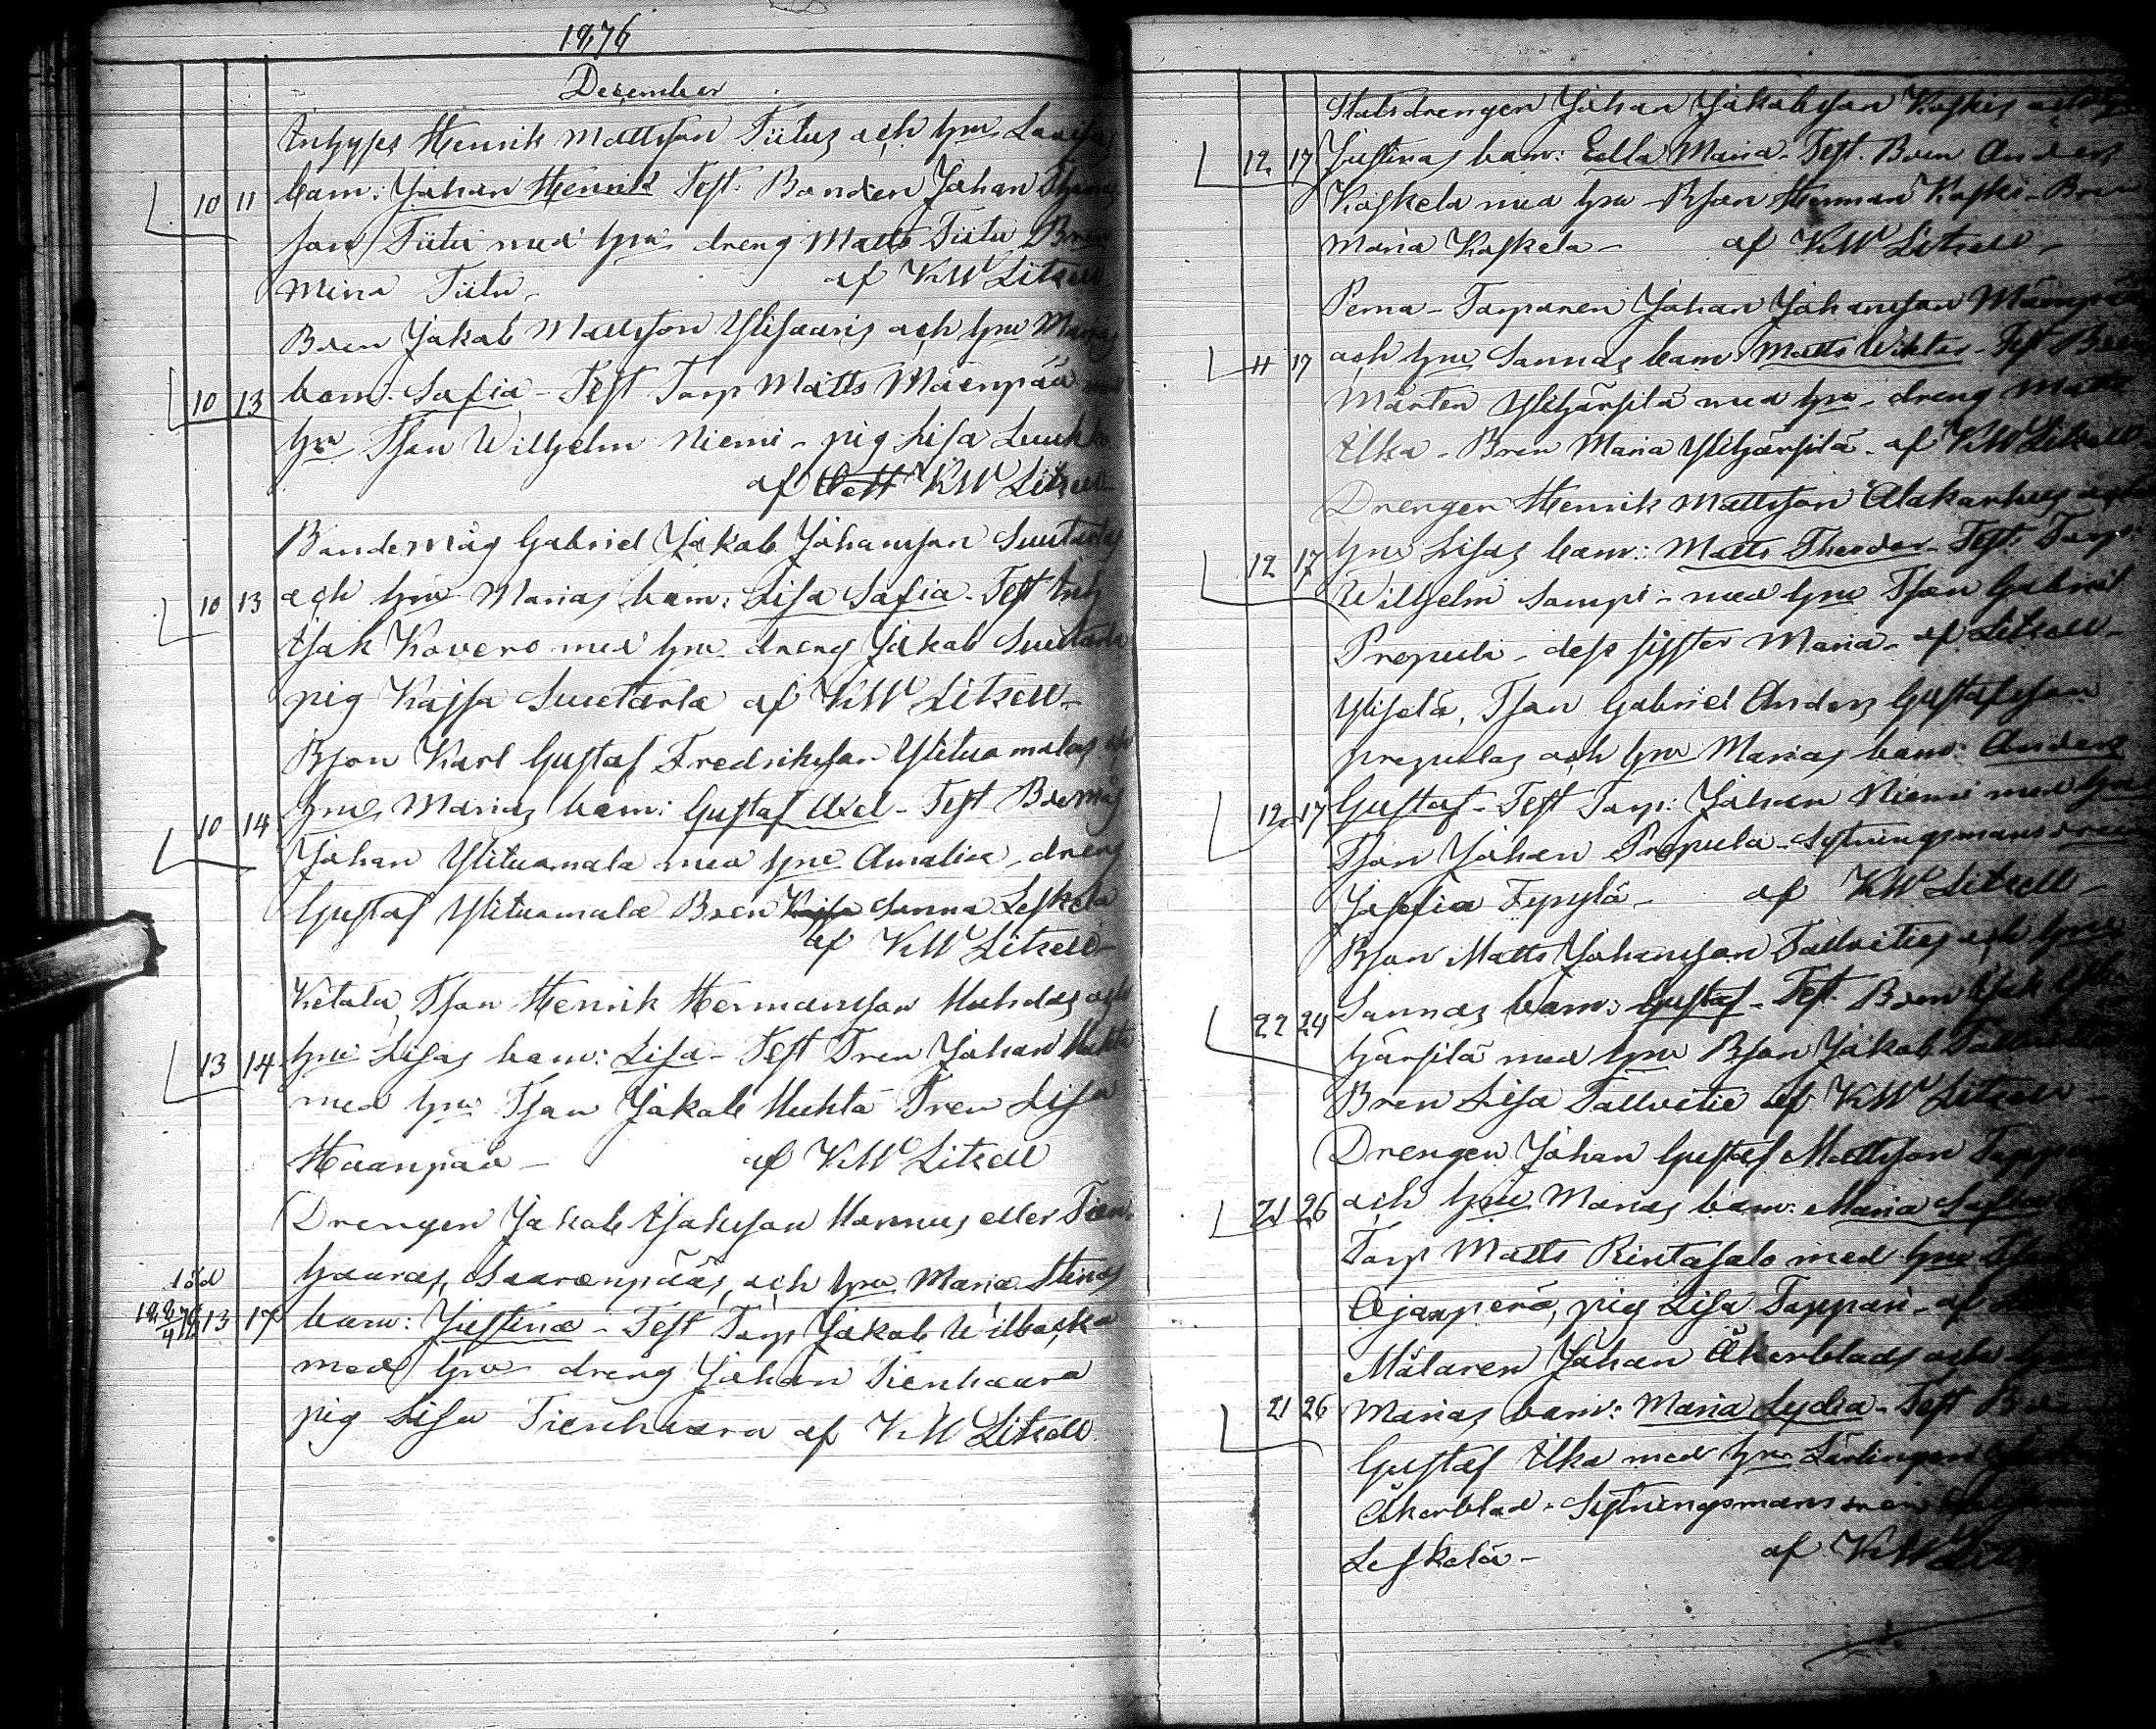 1876
December
Inhyses Henrik Mattsson Tiitus och hru Lovisas
10 11 barn: Johan Henrik Test. Bonden Johan
son Tiitu med hru dreng Matts Tiitu Bren
Mina Tiitu - af KW Litzell
Bden Jakob Mattsson Ylisaaris och hru Marias
10 13 barn: Sofia - Test Torp Matts Mäenpää med
hru Tson Wilhelm Niemi - pig Lisa Luukko
af KW Litzell
Bondemåg Gabriel Jakob Johansson Suutarlas
10 13 och hru Marias barn: Lisa Sofia - Test Inh
Isak Kovero med hru dreng Jakob Suutarla
pig Kajsa Suutarla af KW Litzell -
Bson Karl Gustaf Fredriksson Ylituomalas och
10 14 hrus Marias barn: Gustaf Axel - Test Bdemåg
Johan Ylituomala med hru Amalia - dreng
Gustaf Ylituomala Bren Sanna Leskelä
af KW Litzell -
Ketala, Tson Henrik Hermansson Huhdas och
13 14 hru Lisas barn: Lisa - Test Tren Johan Huhta
med hru Tson Jakob Huhta Tren Lisa
Haanpää - af KW Litzell
Drengen Jakob Isaksson Hannus eller Tien-
död haaras, Saarenpääs, och hru Maria Stinas
13 17 barn: Justina - Test Torp Jakob Wilbacka
med hru dreng Johan Tienhaara
pig Lisa Tienhaara af KW Litzell
Statsdrengen Johan Jakobsson Koskis och hru
12 17 Justinas barn: Eella Maria - Test. Bden Anders
Koskela med hru - Bson Herman Koski - Bren
Maria Koskela - af KW Litzell -
Perna - Torparen Johan Johansson Mäenpää
11 17 och hru Sannas barn: Matts Wiktor - Test Bden
Mårten Ylihärsilä med hru - dreng Matts
Ilka - Bren Maria Ylihärsilä - af KW Litzell
Drengen Henrik Mattsson Alakarhus och
12 17 hru Lisas barn: Matts Theodor - Test: Torp:
Wilhelm Sampi - med hru Tson Gabriel
Propula - dess syster Maria - af Litzell -
Ylisela, Tson Gabriel Anders Gustafsson
propulas och hru Marias barn: Anders
12 17 Gustaf - Test Torp: Johan Niemi med hru
Tson Johan Propula - Sytningsmans
Josefia - af KW Litzell -
Bson Matts Johansson Tallvities och hru
22 24 Sannas barn: Gustaf - Test. Bden Isak Yli-
härsilä med hru Bson Jakob Tallvitie
Bren Lisa Tallvitie af KW Litzell -
Drengen Johan Gustaf Mattsson
21 26 och hru Marias barn: Maria Sofia
Torp Matts Rintasalo med hru Tson
Ojanperä, pig Lisa Toppari - af
Målaren Johan Åkerblads och hru
21 26 Marias barn: Maria Lydia - Test Bden
Gustaf Ilka med hru Lärlingen
Åkerblad - Sytningsmans
Leskelä - af KW Litzell